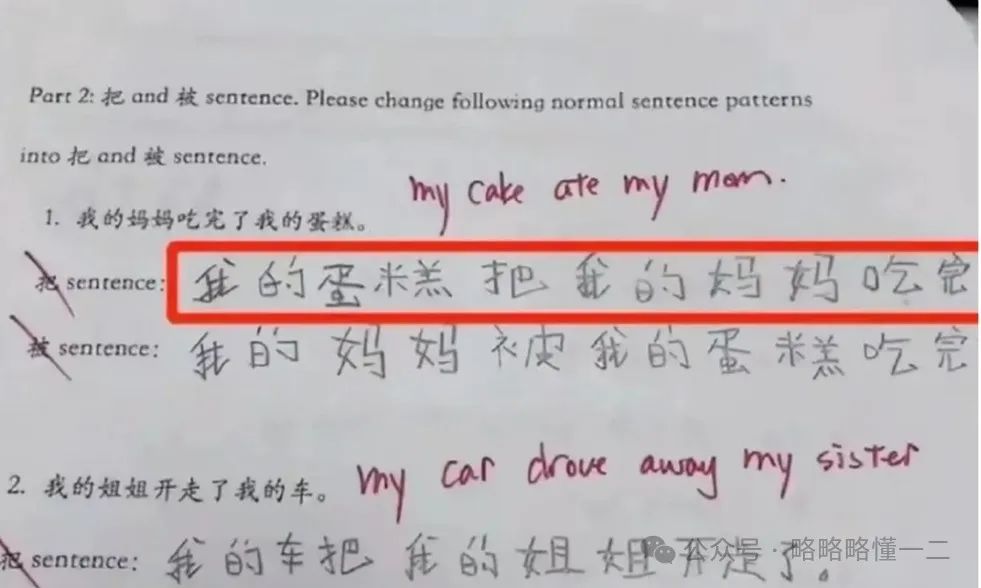 Part 2: 把 and 被 sentence. Please change following normal sentence patterns
into 把 and 被 sentence.
my cake ate my mom.
1. 我的妈妈吃完了我的蛋糕。
把 sentence: 我的蛋糕把我的妈妈吃完
被 sentence: 我的妈妈被我的蛋糕吃完
my car drove away my sister
2. 我的姐姐开走了我的车。
把 sentence: 我的车把我的姐姐开走了。
公众号·略略略懂一二